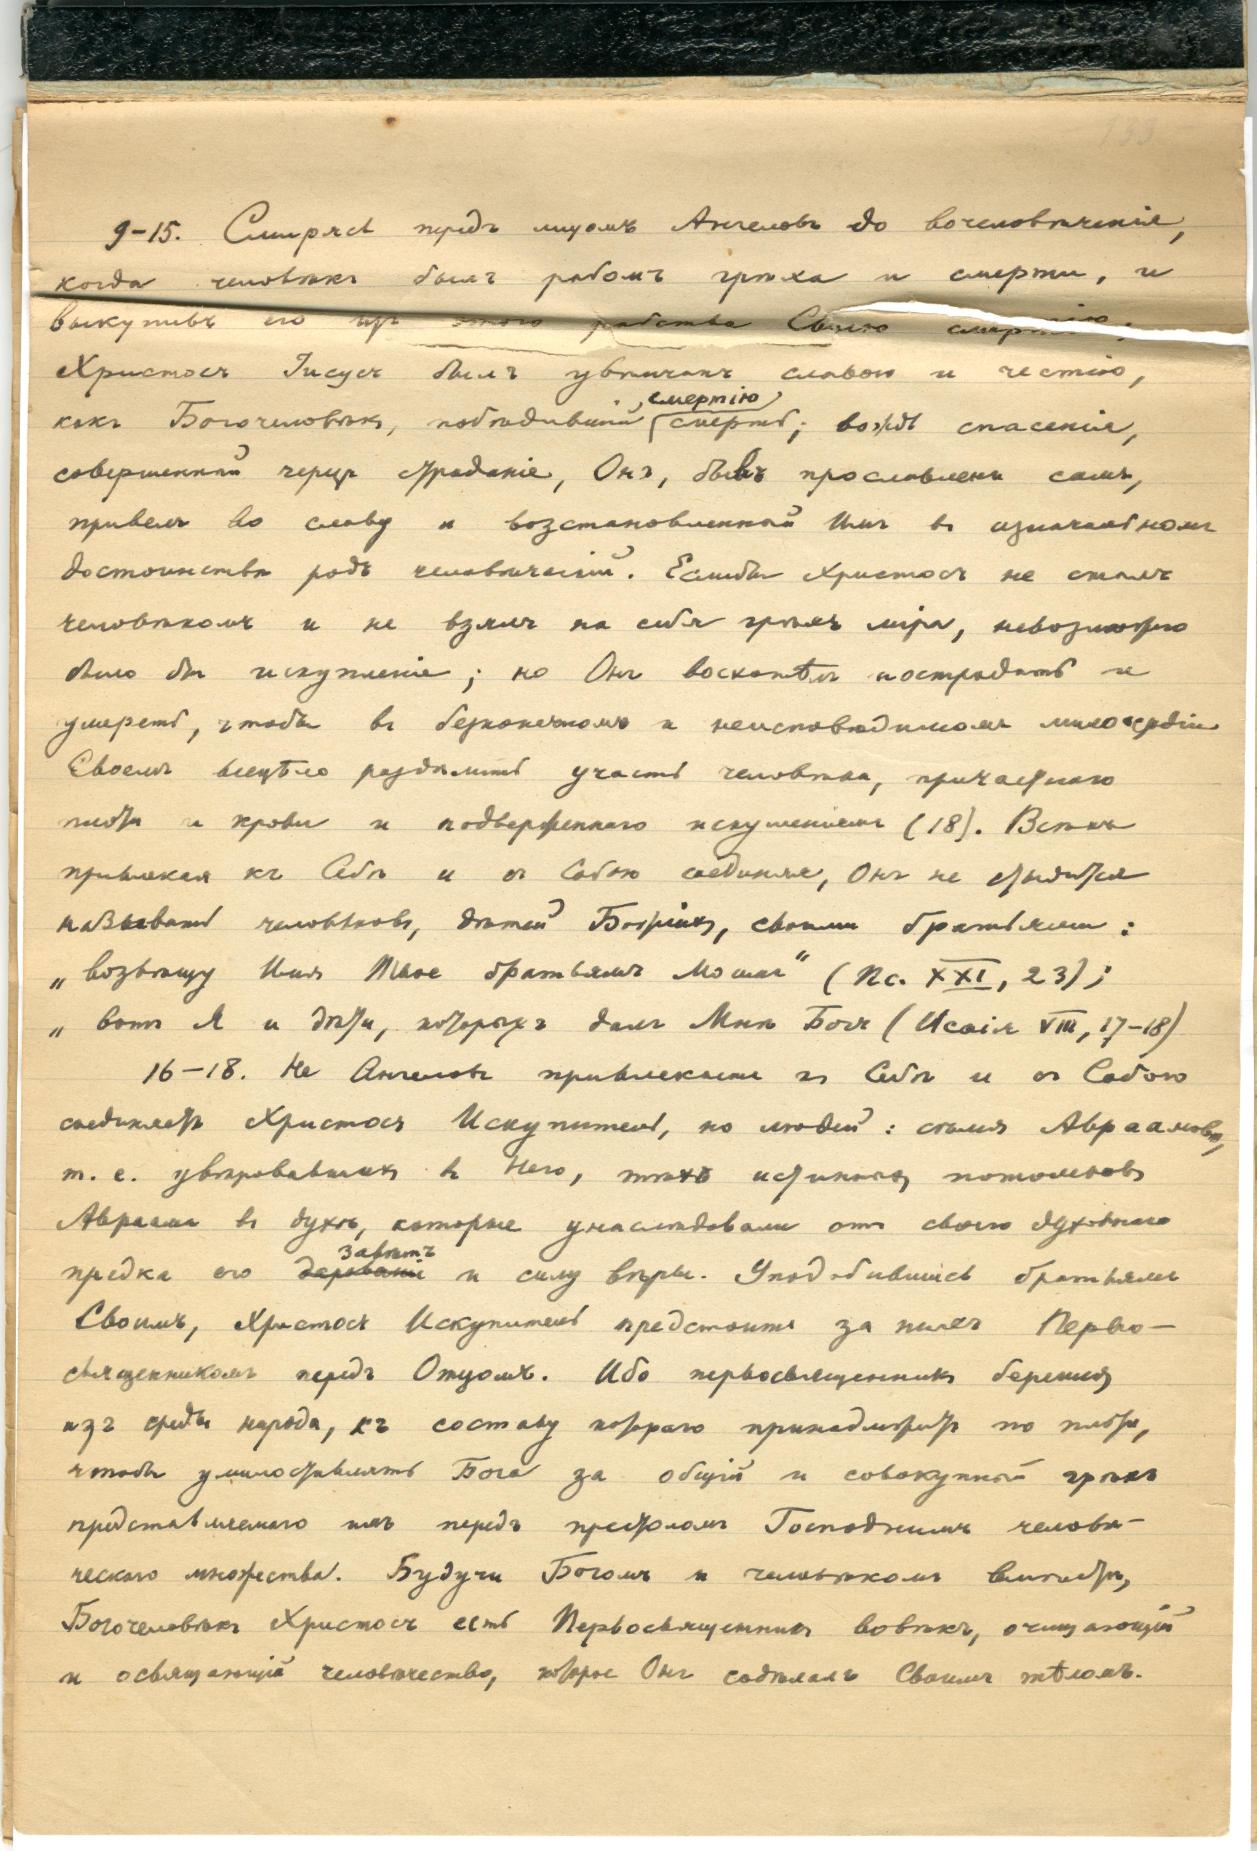 9–15. Смирясь передъ лицомъ Ангеловъ до вочеловѣченія,
когда человѣкъ былъ рабомъ грѣха и смерти, и
выкупивъ его изъ этого рабства Своею смертію,
Христосъ Іисусъ былъ увѣнчанъ славою и честію,
какъ Богочеловѣкъ, побѣдившій смертію смерть; вождь спасенія,
совершенный черезъ страданіе, Онъ, бывъ прославленъ самъ,
привелъ во славу и возстановленный Имъ въ изначальномъ
достоинствѣ родъ человѣческій. Еслибы Христосъ не сталъ
человѣкомъ и не взялъ на себя грѣхъ міра, невозможно
было бы искупленіе; но Онъ восхотѣлъ пострадать и
умереть, чтобы въ безконечномъ и неисповѣдимомъ милосердіи
Своемъ всецѣло раздѣлить участь человѣка, причастнаго
плоти и крови и подверженнаго искушеніямъ (18). Всѣхъ
привлекая къ Себѣ и съ Собою соединяя, Онъ не стыдится
называть человѣковъ, дѣтей Божіихъ, своими братьями:
„возвѣщу Имя Твое братьямъ Моимъ“ (Пс. XXI, 23);
„вотъ Я и дѣти, которыхъ далъ Мнѣ Богъ (Исаія VIII, 17–18)
16–18. Не Ангеловъ привлекаетъ къ Себѣ и съ Собою
соединяетъ Христосъ Искупитель, но людей: сѣмя Авраамово,
т. е. увѣровавшихъ въ Него, тѣхъ истинныхъ потомковъ
Авраама въ духѣ, которые унаслѣдовали отъ своего духовнаго
предка его завѣтъ и силу вѣры. Уподобившись братьямъ
Своимъ, Христосъ Искупитель предстоитъ за нихъ Перво-
священникомъ передъ Отцомъ. Ибо первосвященникъ берется
изъ среды народа, къ составу котораго принадлежитъ по плоти,
чтобы умилостивлять Бога за общій и совокупный грѣхъ
представляемаго имъ передъ престоломъ Господнимъ человѣ-
ческаго множества. Будучи Богомъ и человѣкомъ вмѣстѣ,
Богочеловѣкъ Христосъ есть Первосвященникъ вовѣкъ, очищающій
и освящающій человѣчество, которое Онъ содѣлалъ Своимъ тѣломъ.